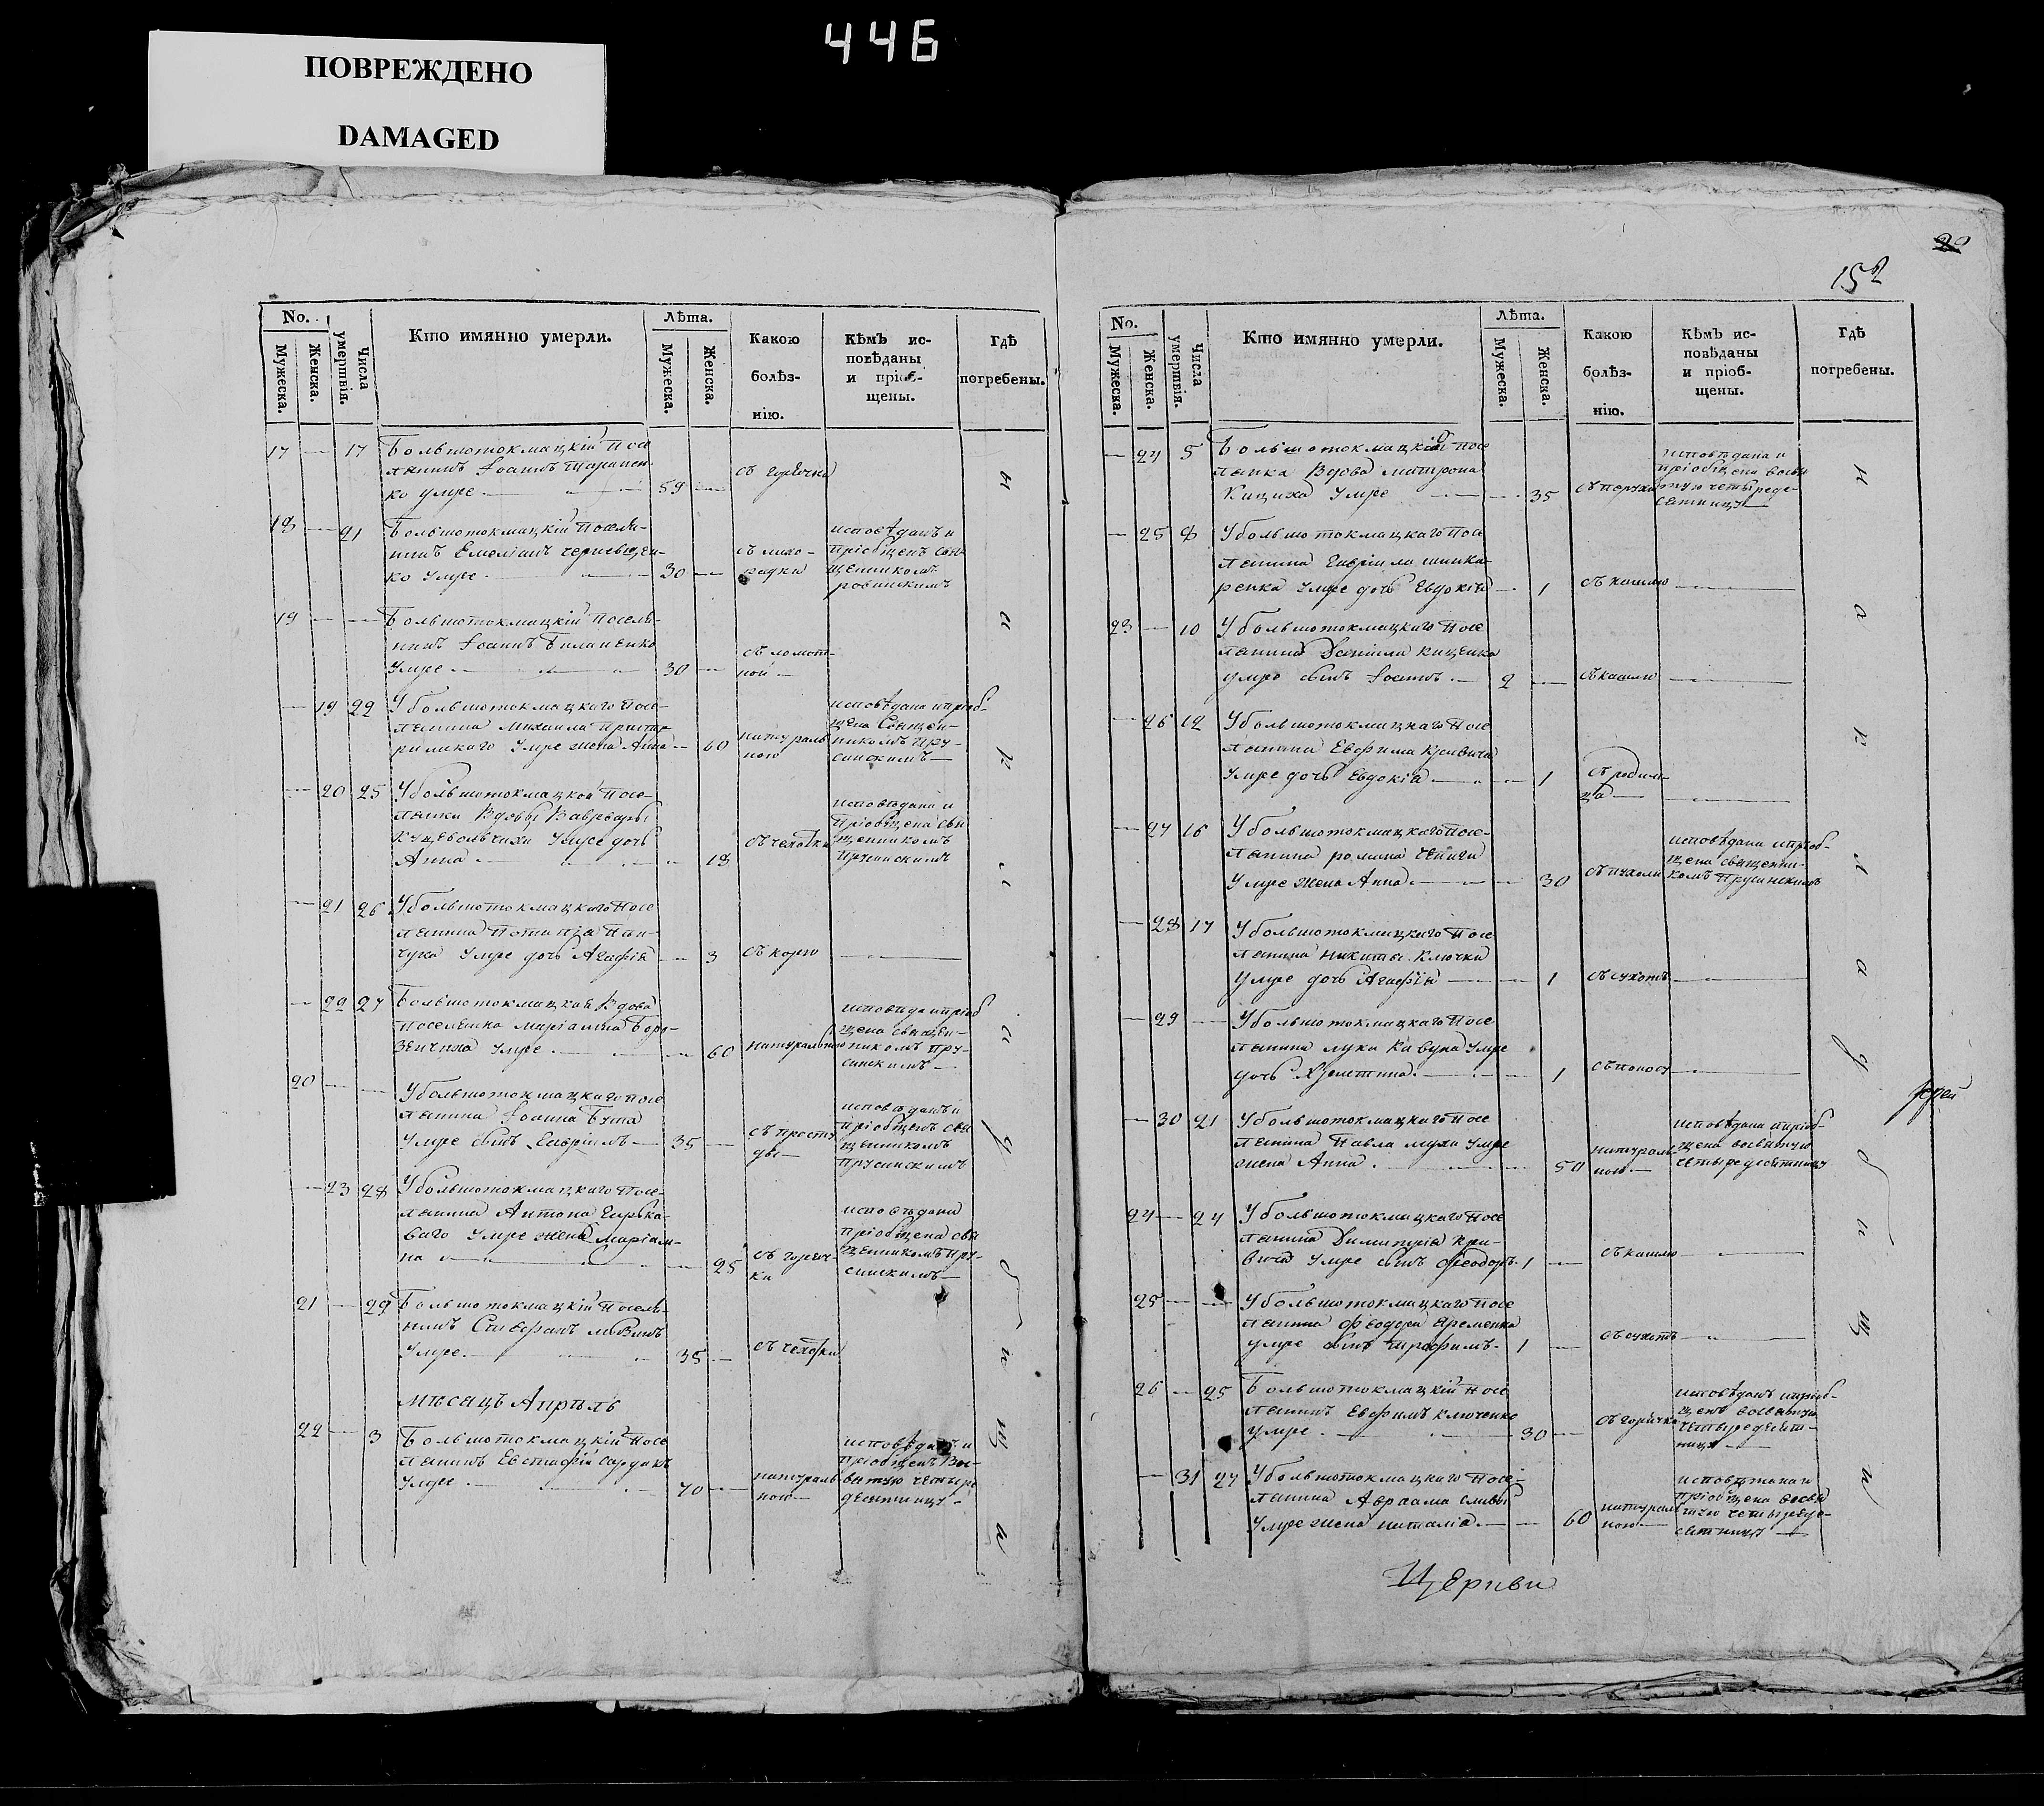 ПОВРЕЖДЕНО
DAMAGED
446
No.
Мужеска.
Женска.
Числа умертвія.
Кто имянно умерли.
Лѣта.
Мужеска.
Женска.
Какою болѣз-нію.
Кѣмъ ис-повѣданы и пріоб-щены.
Гдѣ погребены.
17 — 17 Большотокмацкій Посе
лянинъ Іоаннъ
ко умре — 59 — съ горячки
18 — 21 Большотокмацкій Поселя-
нинъ Емеліанъ
ко умре — 30 — съ лихо-радки исповѣданъ и пріобщенъ свя-щенникомъ
19 — — Большотокмацкій Поселя-
нинъ Іоаннъ Биланенко
умре — 30 — съ ломот-ной —
— 19 22 Убольшотокмацкаго Посе-
лянина Михаила
умре жена Анна — 60 натураль-ною исповѣдана и пріоб-щена Священ-никомъ Пру-синскимъ —
— 20 25 Убольшотокмацкой Посе-
лянки Вдовы Варвары
умре дочь
Анна — 18 съ чехотки исповѣдана и Пріобщена свя-щенникомъ Прусинскимъ
— 21 26 Убольшотокмацкаго Посе
лянина Потапія
умре дочь Агафія — 3 съ корю —
— 22 27 Большотокмацкая Вдова
Поселянка Маріамна
умре — 60 натуральною пріоб-щена священ-никомъ Пру-синскимъ —
20 — — Убольшотокмацкаго посе
лянина Іоанна Бута
умре сынъ Гавріилъ — 35 — съ просту-ды — исповѣданъ и пріобщенъ свя-щенникомъ Прусинскимъ
— 23 28 Убольшотокмацкаго Посе-
лянина Антона
ваго умре жена Маріам-
на — 25 съ горяч-ки исповѣдана пріобщена свя-щенникомъ Пру-синскимъ —
21 — 29 Большотокмацкій Поселя-
нинъ Стефанъ
умре — 35 — съ чехотки
Мѣсяцъ Апрѣль
22 — 3 Большотокмацкій Посе
лянинъ Евстафій Сардакъ
умре — 70 — натураль-ною — исповѣданъ и пріобщенъ Вос-вятую четыре-десятницу —
20
152
No.
Мужеска.
Женска.
Числа умертвія.
Кто имянно умерли.
Лѣта.
Мужеска.
Женска.
Какою болѣз-нію.
Кѣмъ ис-повѣданы и пріоб-щены.
Гдѣ погребены.
— 24 5 Большотокмацкая Посе
лянка Вдова Матрона
Кициха умре — 35 исповѣдана и пріобщена восвя-тую четыреде-сятницу —
— 25 8 Убольшотокмацкаго Посе
лянина Гавріила Шинка-
ренка умре дочь Евдокія — 1 съ кашлю —
23 — 10 Убольшотокмацкаго Посе
лянина Даніила Кащенка
умре сынъ Іоаннъ — 2 — съ кашлю —
— 26 12 Убольшотокмацкаго Посе
лянина Евфима
умре дочь Евдокія — 1 съ родим-ца —
— 27 16 Убольшотокмацкаго Посе-
лянина Романа Чепиги
умре жена Анна — 30 исповѣдана и пріоб-щена священни-комъ Прусинскимъ
— 28 17 Убольшотокмацкаго Посе
лянина Никиты Ключки
умре дочь Агафія — 1 съ сухотъ —
— 29 — Убольшотокмацкаго Посе
лянина Луки Кавуна умре
дочь Христина — 1 съ поносу —
— 30 21 Убольшотокмацкаго Посе
лянина Павла Мухи умре
жена Анна — 50 натураль-ною — исповѣдана и пріоб-щена восвятую четыредесятницу
Іерей
24 — 24 Убольшотокмацкаго Посе
лянина Димитрія Кри-
вича умре сынъ Феодоръ. 1 — съ кашлю —
25 — — Убольшотокмацкаго Посе
лянина Феодора Яременка
умре сынъ Трофимъ — 1 — съ сухотъ —
26 — 25 Большотокмацкій Посе
лянинъ Евфимъ Ключенко
умре — 30 — съ горячки исповѣданъ и пріоб-щенъ восвятую четыредесят-ницу —
— 31 27 Убольшотокмацкаго Посе-
лянина Авраама Сливы
умре жена Наталія — 60 натураль-ною — и пріобщена восвя-тую четыреде-сятницу —
на кладбищи
Церкви